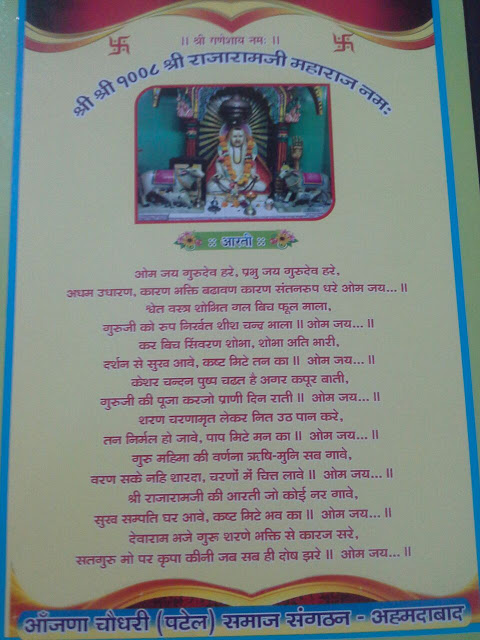 ।। श्री गणेशाय नमः ।।
श्री श्री १००८ श्री राजारामजी महाराज नमः
आरती
ओम जय गुरुदेव हरे, प्रभु जय गुरुदेव हरे,
अधम उधारण, कारण भक्ति बढावण कारण संतनरुप धरे ओम जय... ॥
श्वेत वस्त्र शोभित गल बिच फूल माला,
गुरुजी को रुप निरखंत शीश चन्द्र भाला ॥ ओम जय... ॥
कर बिच सिंवरण शोभा, शोभा अति भारी,
दर्शन से सुख आवे, कष्ट मिटे तन का ॥ ओम जय... ॥
केशर चन्दन पुष्प चढत है अगर कपूर बाती,
गुरुजी की पूजा करजो प्राणी दिन राती ॥ ओम जय... ॥
शरण चरणामृत लेकर नित उठ पान करे,
तन निर्मल हो जावे, पाप मिटे मन का ॥ ओम जय... ॥
गुरु महिमा की वर्णना ऋषि-मुनि सब गावे,
वरण सके नहि शारदा, चरणों में चित्त लावे ॥ ओम जय... ॥
श्री राजारामजी की आरती जो कोई नर गावे,
सुख सम्पति घर आवे, कष्ट मिटे भव का ॥ ओम जय... ॥
देवाराम भजे गुरू शरणे भक्ति से कारज सरे,
सतगुरु मो पर कृपा कीनी जब सब ही दोष झरे ॥ ओम जय... ॥
आँजणा चौधरी (पटेल) समाज संगठन - अहमदाबाद